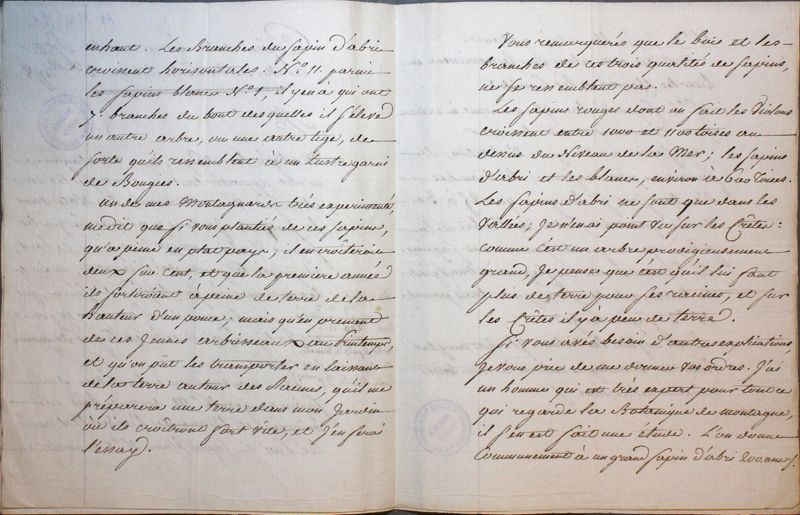 en haut. Les Branches du sapin d'abri
croissent horisontales. N.º 11. parmi
les sapins blancs N.º 1, il y en a qui ont
7. branches du bout desquelles il s'éleve
un autre arbre, ou une autre tige, de
sorte qu'ils ressemblent à un Lustre garni
de Bougies.
un de mes Montagnards très experimenté,
me dit que si vous plantiés de ces sapins,
qu'a peine en plat pays, il en croîteroient
deux sur cent, et que la premiere année
ils sortiroient à peine de terre de la
hauteur d'un pouce; mais qu'en prenant
de ces Jeunes arbrisseaux au Printemps,
et qu'on put les transporter en laissant
de la terre autour des Racines, qu'il me
préparera une terre dans mon Jardin
où ils croîtront fort vite, et j'en ferai
l'essay.
Vous remarquerés que le bois et les
branches de ces trois qualités de sapins,
ne se ressemblent pas.
Les sapins rouges dont on fait les Violons
croissent entre 1000 et 1100 toises au
dessus du Niveau de la Mer; les sapins
d'abri et les blancs, environ à 600 Toises.
Les sapins d'abri ne sont que dans les
Vallées; Je n'en ai point vu sur les Crêtes:
comme c'est un arbre prodigieusement
grand, Je pense que c'est qu'il lui faut
plus de terre pour ses racines, et sur
les Crêtes il y a peu de terre.
Si vous avés besoin d'autres explications
je vous prie de me donner vos ordres. J'ai
un homme qui est très expert pour tout ce
qui regarde la Botanique de montagne,
il s'en est fait une étude. L'on donne
Communement à un grand sapin d'abri 200 ans